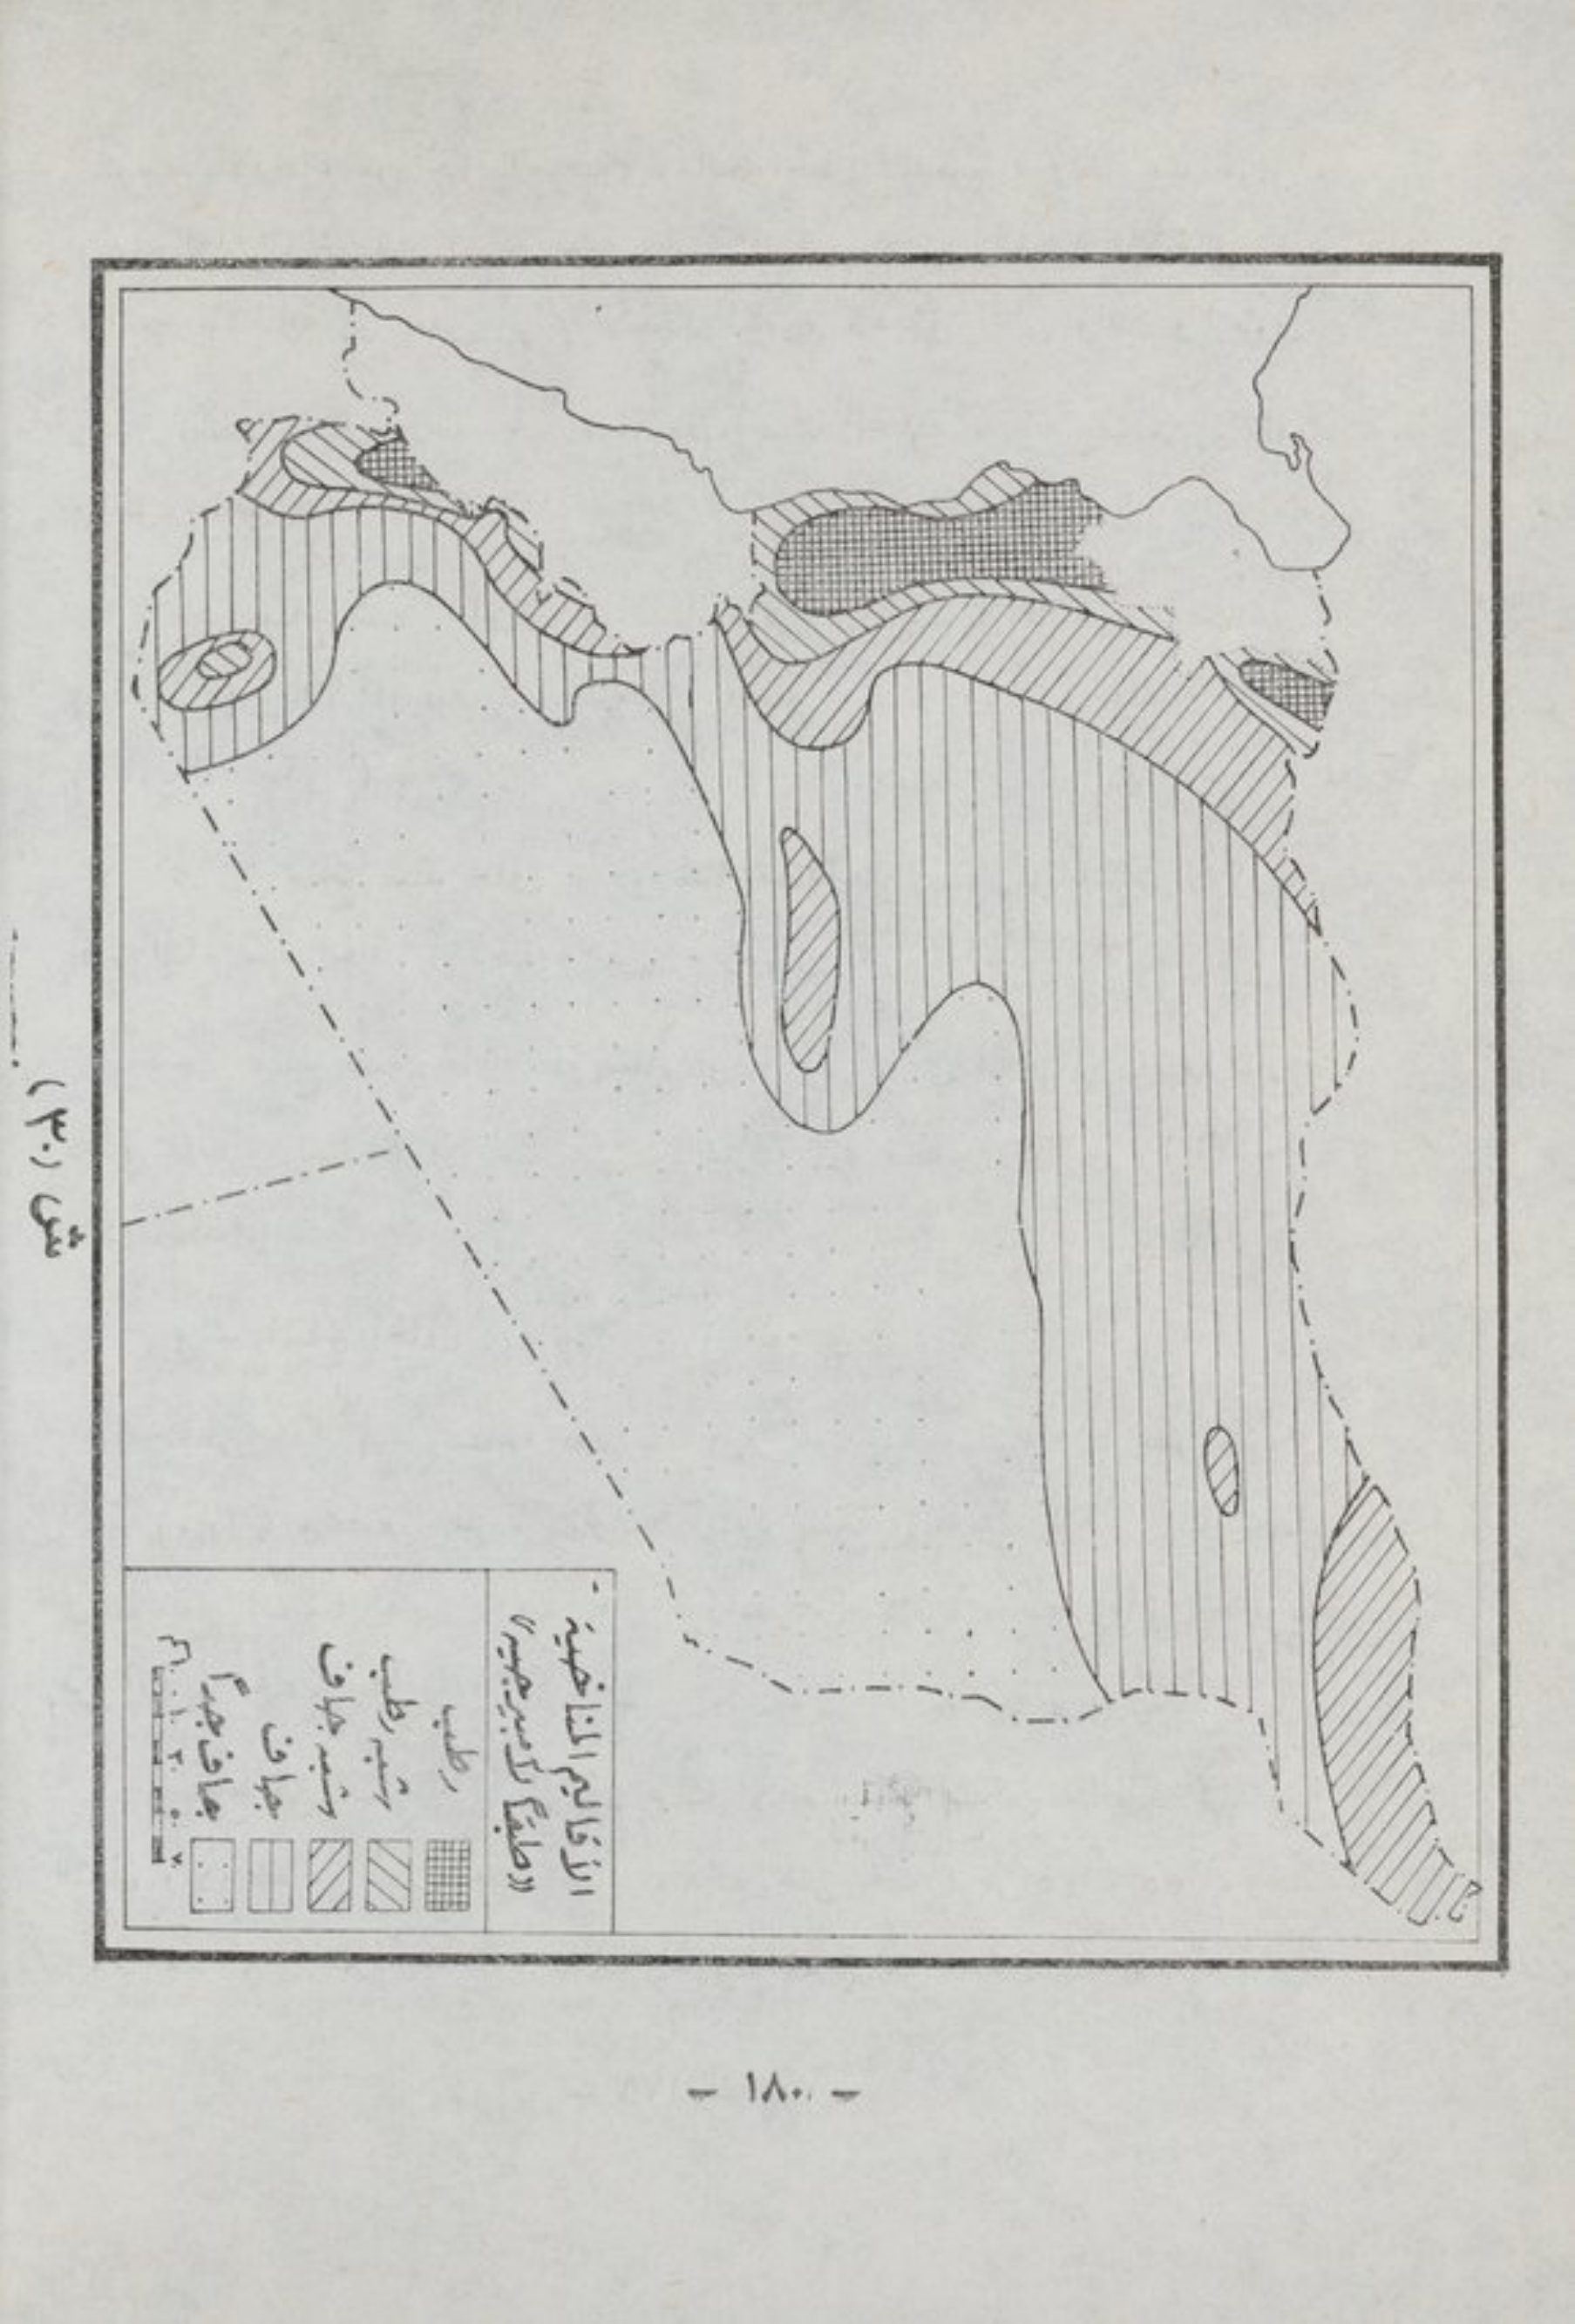 الأقاليم المناخية
«طبقاً لأمبرجيه»
رطب
شبه رطب
شبه جاف
جاف
جاف جداً
ش (٣٠)
- ١٨٠ -